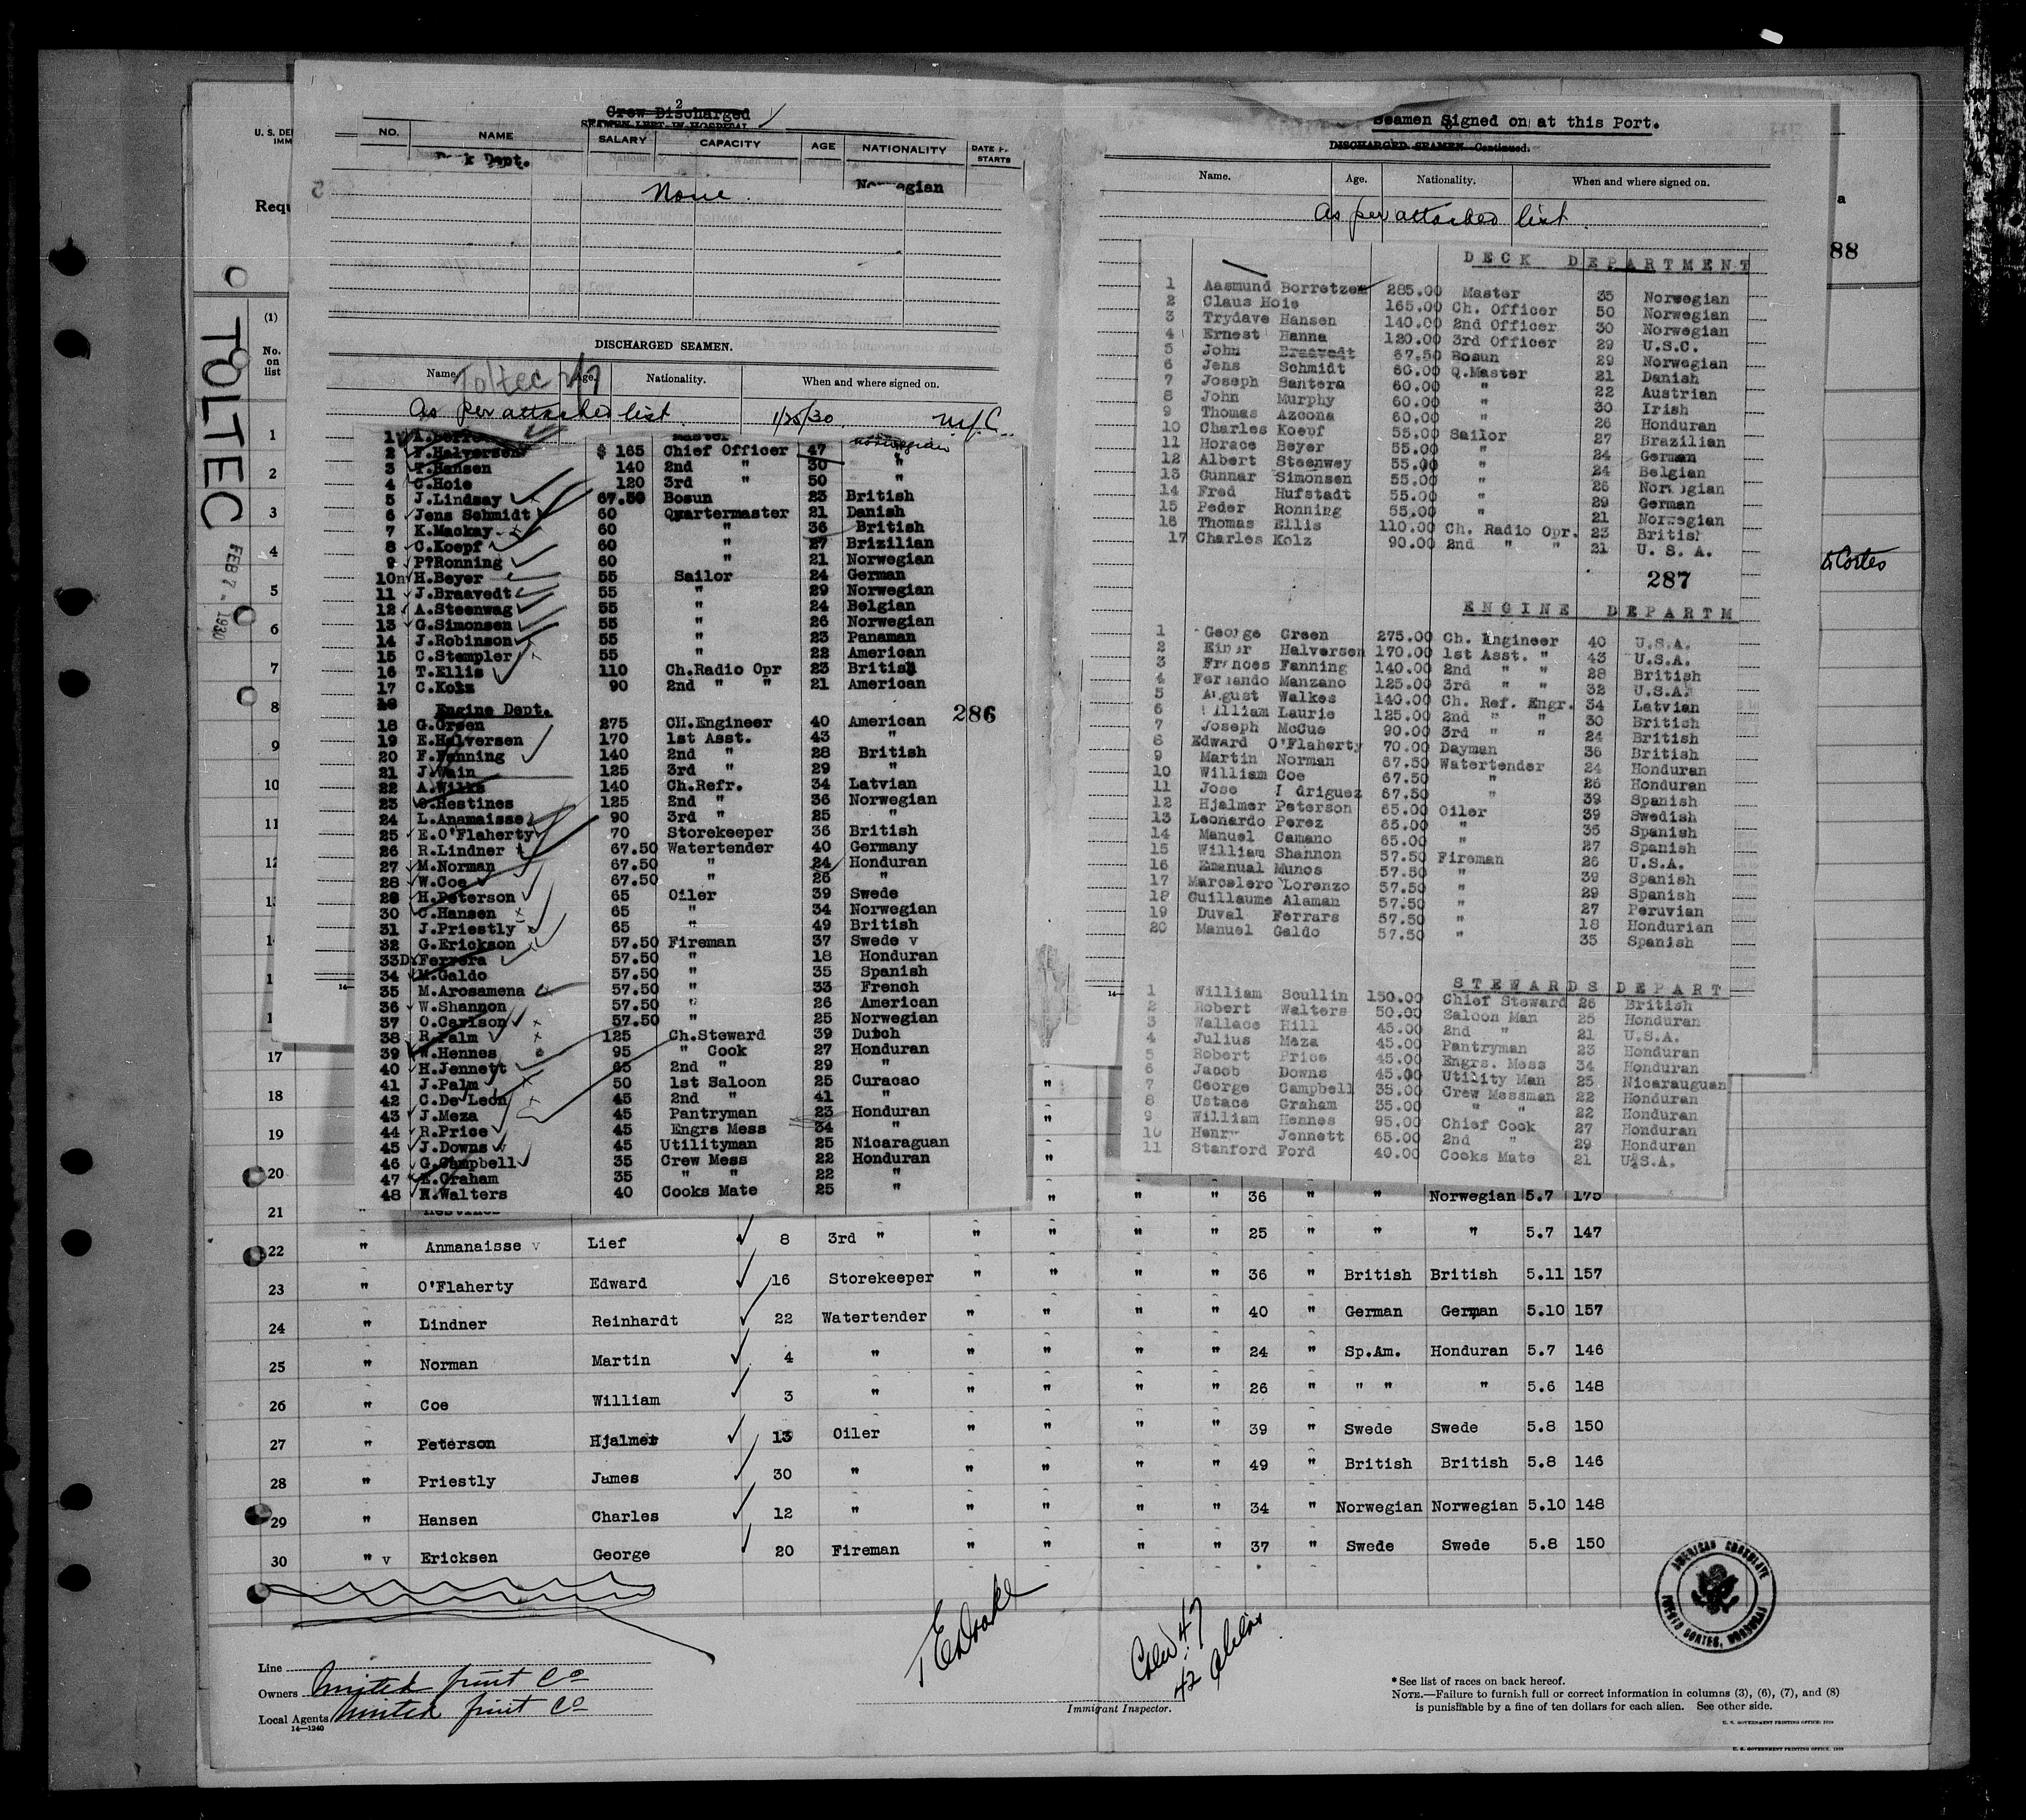 U. S. DE
IMM
Requ
(1)
No.
on
list
TOLTEC
FEB 7 - 1930
Crew Discharged
2
SEAMEN LEFT IN HOSPITAL
NO. NAME SALARY CAPACITY AGE NATIONALITY DATE STARTS
Dept. Norwegian
None.
DISCHARGED SEAMEN.
Name. Age. Nationality. When and where signed on.
Toltec 2/7
As per attached list 1/25/30.
1 Master Norwegian
2 F.Halversen $ 165 Chief Officer 47 "
3 T.Hansen 140 2nd " 30 "
4 C.Hoie 120 3rd " 50 "
5 J.Lindsay 67.50 Bosun 23 British
6 Jens Schmidt 60 Quartermaster 21 Danish
7 K.Mackay 60 " 36 British
8 C.Koepf 60 " 27 Brizilian
9 P?Ronning 60 " 21 Norwegian
10 H.Beyer 55 Sailor 24 German
11 J.Braavedt 55 " 29 Norwegian
12 A.Steenwag 55 " 24 Belgian
13 G.Simonsen 55 " 26 Norwegian
14 J.Robinson 55 " 23 Panaman
15 C.Stempler 55 " 22 American
16 T.Ellis 110 Ch.Radio Opr 23 British
17 C.Kolz 90 2nd " " 21 American
Engine Dept. 286
18 G.Green 275 CH.Engineer 40 American
19 E.Halversen 170 1st Asst. 43 "
20 F.Fanning 140 2nd " 28 British
21 J.Wain 125 3rd " 29 "
22 A.Wilks 140 Ch.Refr. 34 Latvian
23 O.Hestines 125 2nd " 36 Norwegian
24 L.Anamaisse 90 3rd " 25 "
25 E.O'Flaherty 70 Storekeeper 36 British
26 R.Lindner 67.50 Watertender 40 Germany
27 M.Norman 67.50 " 24 Honduran
28 W.Coe 67.50 " 26 "
29 H.Peterson 65 Oiler 39 Swede
30 C.Hansen 65 " 34 Norwegian
31 J.Priestly 65 " 49 British
32 G.Erickson 57.50 Fireman 37 Swede v
33 D.Ferrera 57.50 " 18 Honduran
34 M.Galdo 57.50 " 35 Spanish
35 M.Arosamena 57.50 " 33 French
36 W.Shannon 57.50 " 26 American
37 O.Carlson 57.50 " 25 Norwegian
38 R.Palm 125 Ch.Steward 39 Dutch
39 W.Hennes 95 " Cook 27 Honduran
40 H.Jennett 65 2nd " 29 "
41 J.Palm 50 1st Saloon 25 Curacao
42 C.De Leon 45 2nd " 41 "
43 J.Meza 45 Pantryman 23 Honduran
44 R.Price 45 Engrs Mess 34 "
45 J.Downs 45 Utilityman 25 Nicaraguan
46 G.Campbell 35 Crew Mess 22 Honduran
47 E.Graham 35 " " 22 "
48 W.Walters 40 Cooks Mate 25 "
Seamen Signed on at this Port.
DISCHARGED SEAMEN—Continued.
Name. Age. Nationality. When and where signed on.
As per attached list.
88
DECK DEPARTMENT
1 Aasmund Borretzen 285.00 Master 35 Norwegian
2 Claus Hoie 165.00 Ch. Officer 50 Norwegian
3 Trydave Hansen 140.00 2nd Officer 30 Norwegian
4 Ernest Hanna 120.00 3rd Officer 29 U.S.C.
5 John Braavedt 67.50 Bosun 29 Norwegian
6 Jens Schmidt 60.00 Q.Master 21 Danish
7 Joseph Santera 60.00 " 22 Austrian
8 John Murphy 60.00 " 30 Irish
9 Thomas Azcona 60.00 " 26 Honduran
10 Charles Koepf 55.00 Sailor 27 Brazilian
11 Horace Beyer 55.00 " 24 German
12 Albert Steenwey 55.00 " 24 Belgian
13 Gunnar Simonsen 55.00 " 26 Norwegian
14 Fred Hufstadt 55.00 " 29 German
15 Peder Ronning 55.00 " 21 Norwegian
16 Thomas Ellis 110.00 Ch. Radio Opr. 23 British
17 Charles Kolz 90.00 2nd " " 21 U. S. A.
287
Cortes
ENGINE DEPARTM
1 George Green 275.00 Ch. Engineer 40 U.S.A.
2 Einer Halversen 170.00 1st Asst. " 43 U.S.A.
3 Frances Fanning 140.00 2nd " " 28 British
4 Fernando Manzano 125.00 3rd " " 32 U.S.A.
5 August Walkes 140.00 Ch. Ref. Engr. 34 Latvian
6 William Laurie 125.00 2nd " " 30 British
7 Joseph McCue 90.00 3rd " " 24 British
8 Edward O'Flaherty 70.00 Dayman 36 British
9 Martin Norman 67.50 Watertender 24 Honduran
10 William Coe 67.50 " 26 Honduran
11 Jose driguez 67.50 " 39 Spanish
12 Hjalmer Peterson 65.00 Oiler 39 Swedish
13 Leonardo Perez 65.00 " 35 Spanish
14 Manuel Camano 65.00 " 27 Spanish
15 William Shannon 57.50 Fireman 26 U.S.A.
16 Emanual Munos 57.50 " 39 Spanish
17 Marcelero Lorenzo 57.50 " 29 Spanish
18 Guillaume Alaman 57.50 " 27 Peruvian
19 Duval Ferrars 57.50 " 18 Hondurian
20 Manuel Galdo 57.50 " 35 Spanish
STEWARDS DEPART
1 William Scullin 150.00 Chief Steward 26 British
2 Robert Walters 50.00 Saloon Man 25 Honduran
3 Wallace Hill 45.00 2nd " 21 U.S.A.
4 Julius Meza 45.00 Pantryman 23 Honduran
5 Robert Price 45.00 Engrs. Mess 34 Honduran
6 Jacob Downs 45.00 Utility Man 25 Nicarauguan
7 George Campbell 35.00 Crew Messman 22 Honduran
8 Ustace Graham 35.00 " " 22 Honduran
9 William Hennes 95.00 Chief Cook 27 Honduran
10 Henry Jennett 65.00 2nd " 29 Honduran
11 Stanford Ford 40.00 Cooks Mate 21 U.S.A.
1
2
3
4
5
6
7
8
9
10
11
12
17
18
19
20 " " " 36 " " Norwegian 5.7 175
21 " Hestines
22 " Anmanaisse v Lief 8 3rd " " " " " 25 " " " 5.7 147
23 " O'Flaherty Edward 16 Storekeeper " " " " 36 " British British 5.11 157
24 " Lindner Reinhardt 22 Watertender " " " " 40 " German German 5.10 157
25 " Norman Martin 4 " " " " " 24 " Sp.Am. Honduran 5.7 146
26 " Coe William 3 " " " " " 26 " " " " 5.6 148
27 " Peterson Hjalmer 13 Oiler " " " " 39 " Swede Swede 5.8 150
28 " Priestly James 30 " " " " " 49 " British British 5.8 146
29 " Hansen Charles 12 " " " " " 34 " Norwegian Norwegian 5.10 148
30 " v Ericksen George 20 Fireman " " " " 37 " Swede Swede 5.8 150
AMERICAN CONSULATE
PUERTO CORTES, HONDURAS
Line
Owners United Fruit Co
Local Agents United Fruit Co
14—1240
Immigrant Inspector.
Crew 47
42 aliens
* See list of races on back hereof.
NOTE.—Failure to furnish full or correct information in columns (3), (6), (7), and (8)
is punishable by a fine of ten dollars for each alien. See other side.
U. S. GOVERNMENT PRINTING OFFICE: 1929
U. S. GOVERNMENT PRINTING OFFICE, 1929